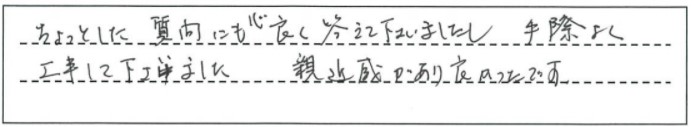 ちょっとした 質問にも心良く答えて下さいましたし 手際よく
工事して下さいました 親近感があり良かったです。